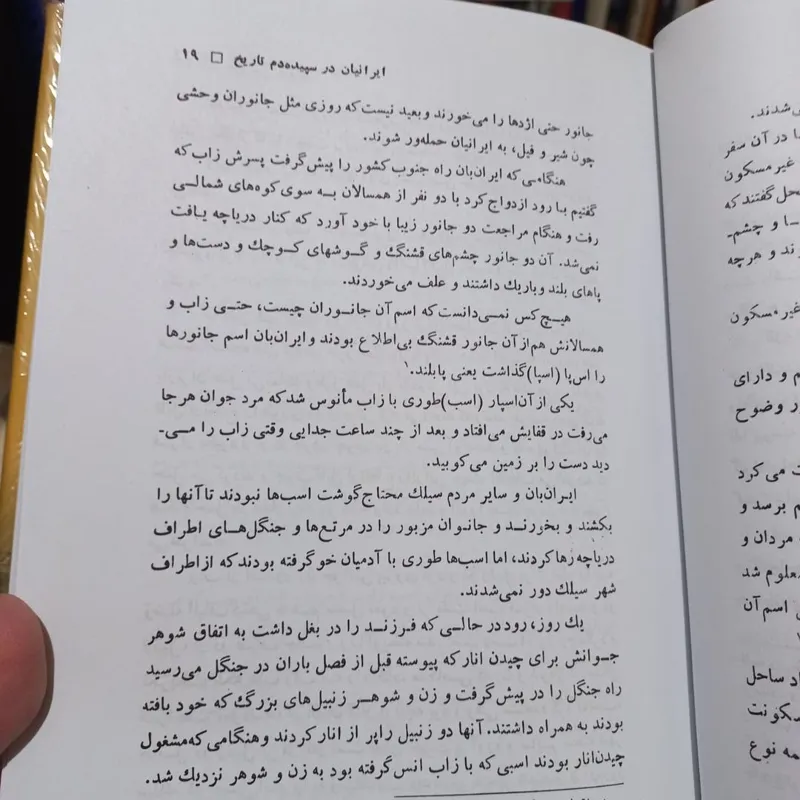 ایرانیان در سپیده‌دم تاریخ □ ۱۹
جانور حتی اژدها را می‌خورند و بعید نیست که روزی مثل جانوران وحشی
چون شیر و فیل، به ایرانیان حمله‌ور شوند.
هنگامی که ایران‌بان راه جنوب کشور را پیش‌گرفت پسرش زاب که
گفتیم با رود ازدواج کرد با دو نفر از همسالان به سوی کوه‌های شمالی
رفت و هنگام مراجعت دو جانور زیبا با خود آورد که کنار دریاچه یافت
نمی‌شد. آن دو جانور چشم‌های قشنگ و گوشهای کوچک و دست‌ها و
پاهای بلند و باریک داشتند و علف می‌خوردند.
هیچ کس نمی‌دانست که اسم آن جانوران چیست، حتی زاب و
همسالانش هم از آن جانور قشنگ بی‌اطلاع بودند و ایران‌بان اسم جانورها
را اس‌پا (اسپا) گذاشت یعنی پابلند.۱
یکی از آن‌اسپار (اسب) طوری با زاب مأنوس شد که مرد جوان هرجا
می‌رفت در قفایش می‌افتاد و بعد از چند ساعت جدایی وقتی زاب را می‌ـ
دید دست را بر زمین می‌کوبید.
ایران‌بان و سایر مردم سیلک محتاج گوشت اسب‌ها نبودند تا آنها را
بکشند و بخورند و جانوان مزبور را در مرتع‌ها و جنگل‌های اطراف
دریاچه رها کردند، اما اسب‌ها طوری با آدمیان خو گرفته بودند که از اطراف
شهر سیلک دور نمی‌شدند.
یک روز، رود در حالی که فرزند را در بغل داشت به اتفاق شوهر
جوانش برای چیدن انار که پیوسته قبل از فصل باران در جنگل می‌رسید
راه جنگل را در پیش‌گرفت و زن و شوهر زنبیل‌های بزرگ که خود بافته
بودند به همراه داشتند. آنها دو زنبیل را پر از انار کردند و هنگامی که مشغول
چیدن انار بودند اسبی که با زاب انس گرفته بود به زن و شوهر نزدیک شد.
شدند.
ا در آن سفر
غیر مسکون
حل گفتند که
ا و چشم‌ـ
ند و هرچه
غیر مسکون
م و دارای
ور وضوح
ت می‌کرد
م برسد و
مردان و
معلوم شد
اسم آن
اد ساحل
سکونت
مه نوع